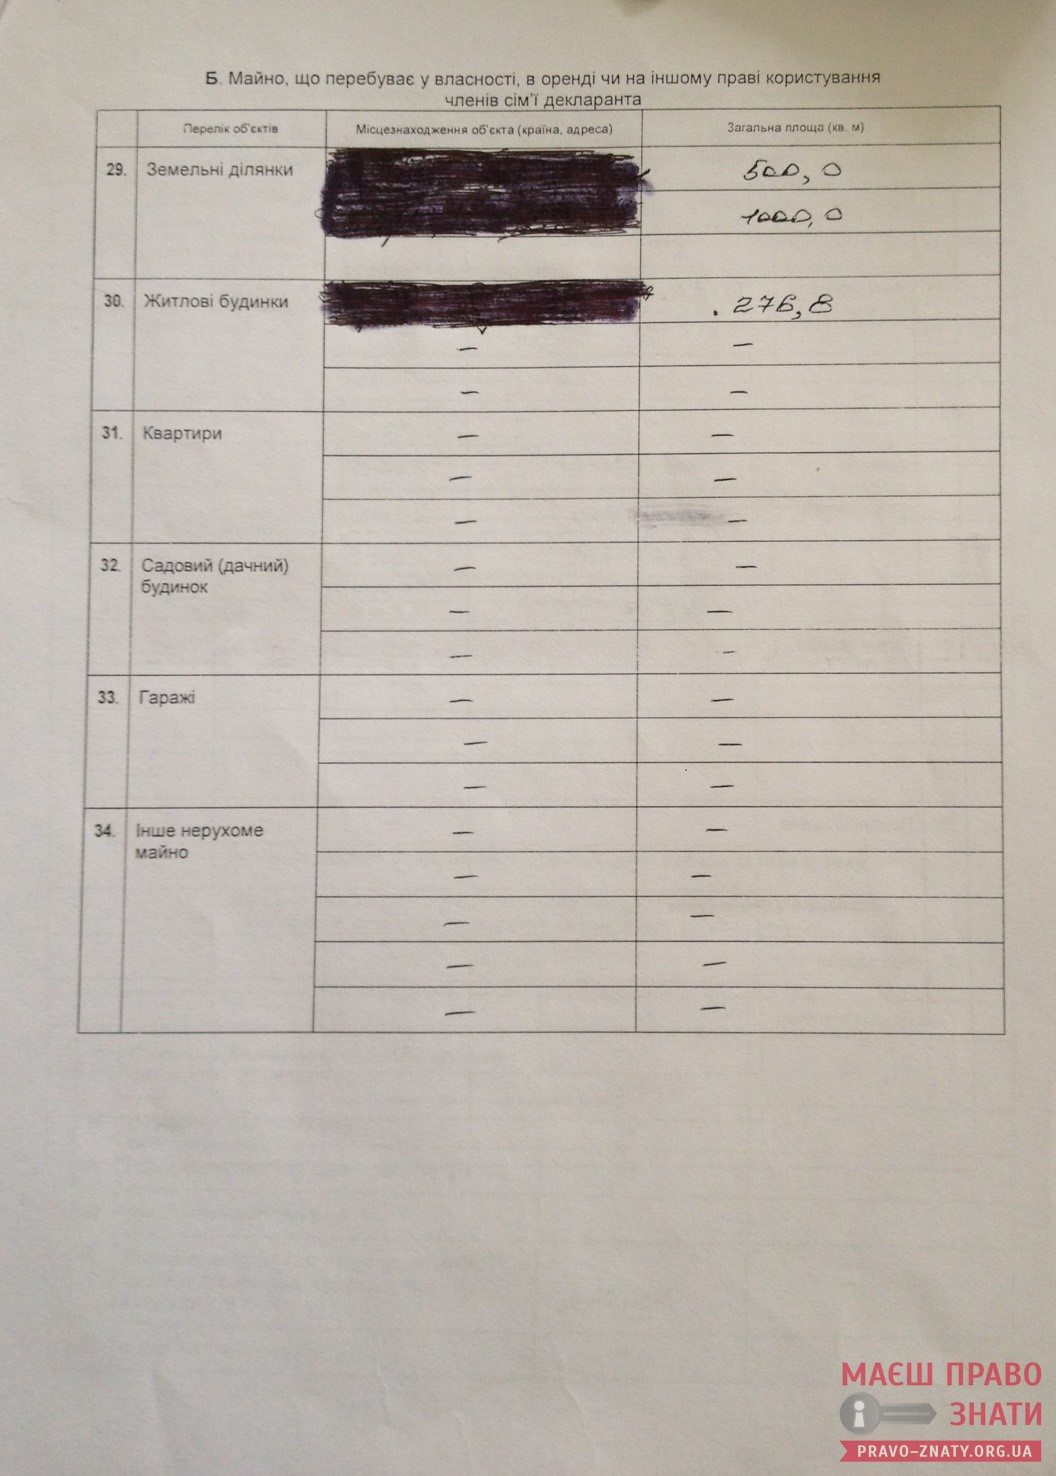 Б. Майно, що перебуває у власності, в оренді чи на іншому праві користування
членів сім'ї декларанта
Перелік об'єктів Місцезнаходження об'єкта (країна, адреса) Загальна площа (кв. м)
29. Земельні ділянки 500,0
1000,0
30. Житлові будинки 276,8
— —
— —
31. Квартири — —
— —
— —
32. Садовий (дачний) — —
будинок
— —
— —
33. Гаражі — —
— —
— —
34. Інше нерухоме — —
майно
— —
— —
— —
— —
МАЄШ ПРАВО
ЗНАТИ
PRAVO-ZNATY.ORG.UA